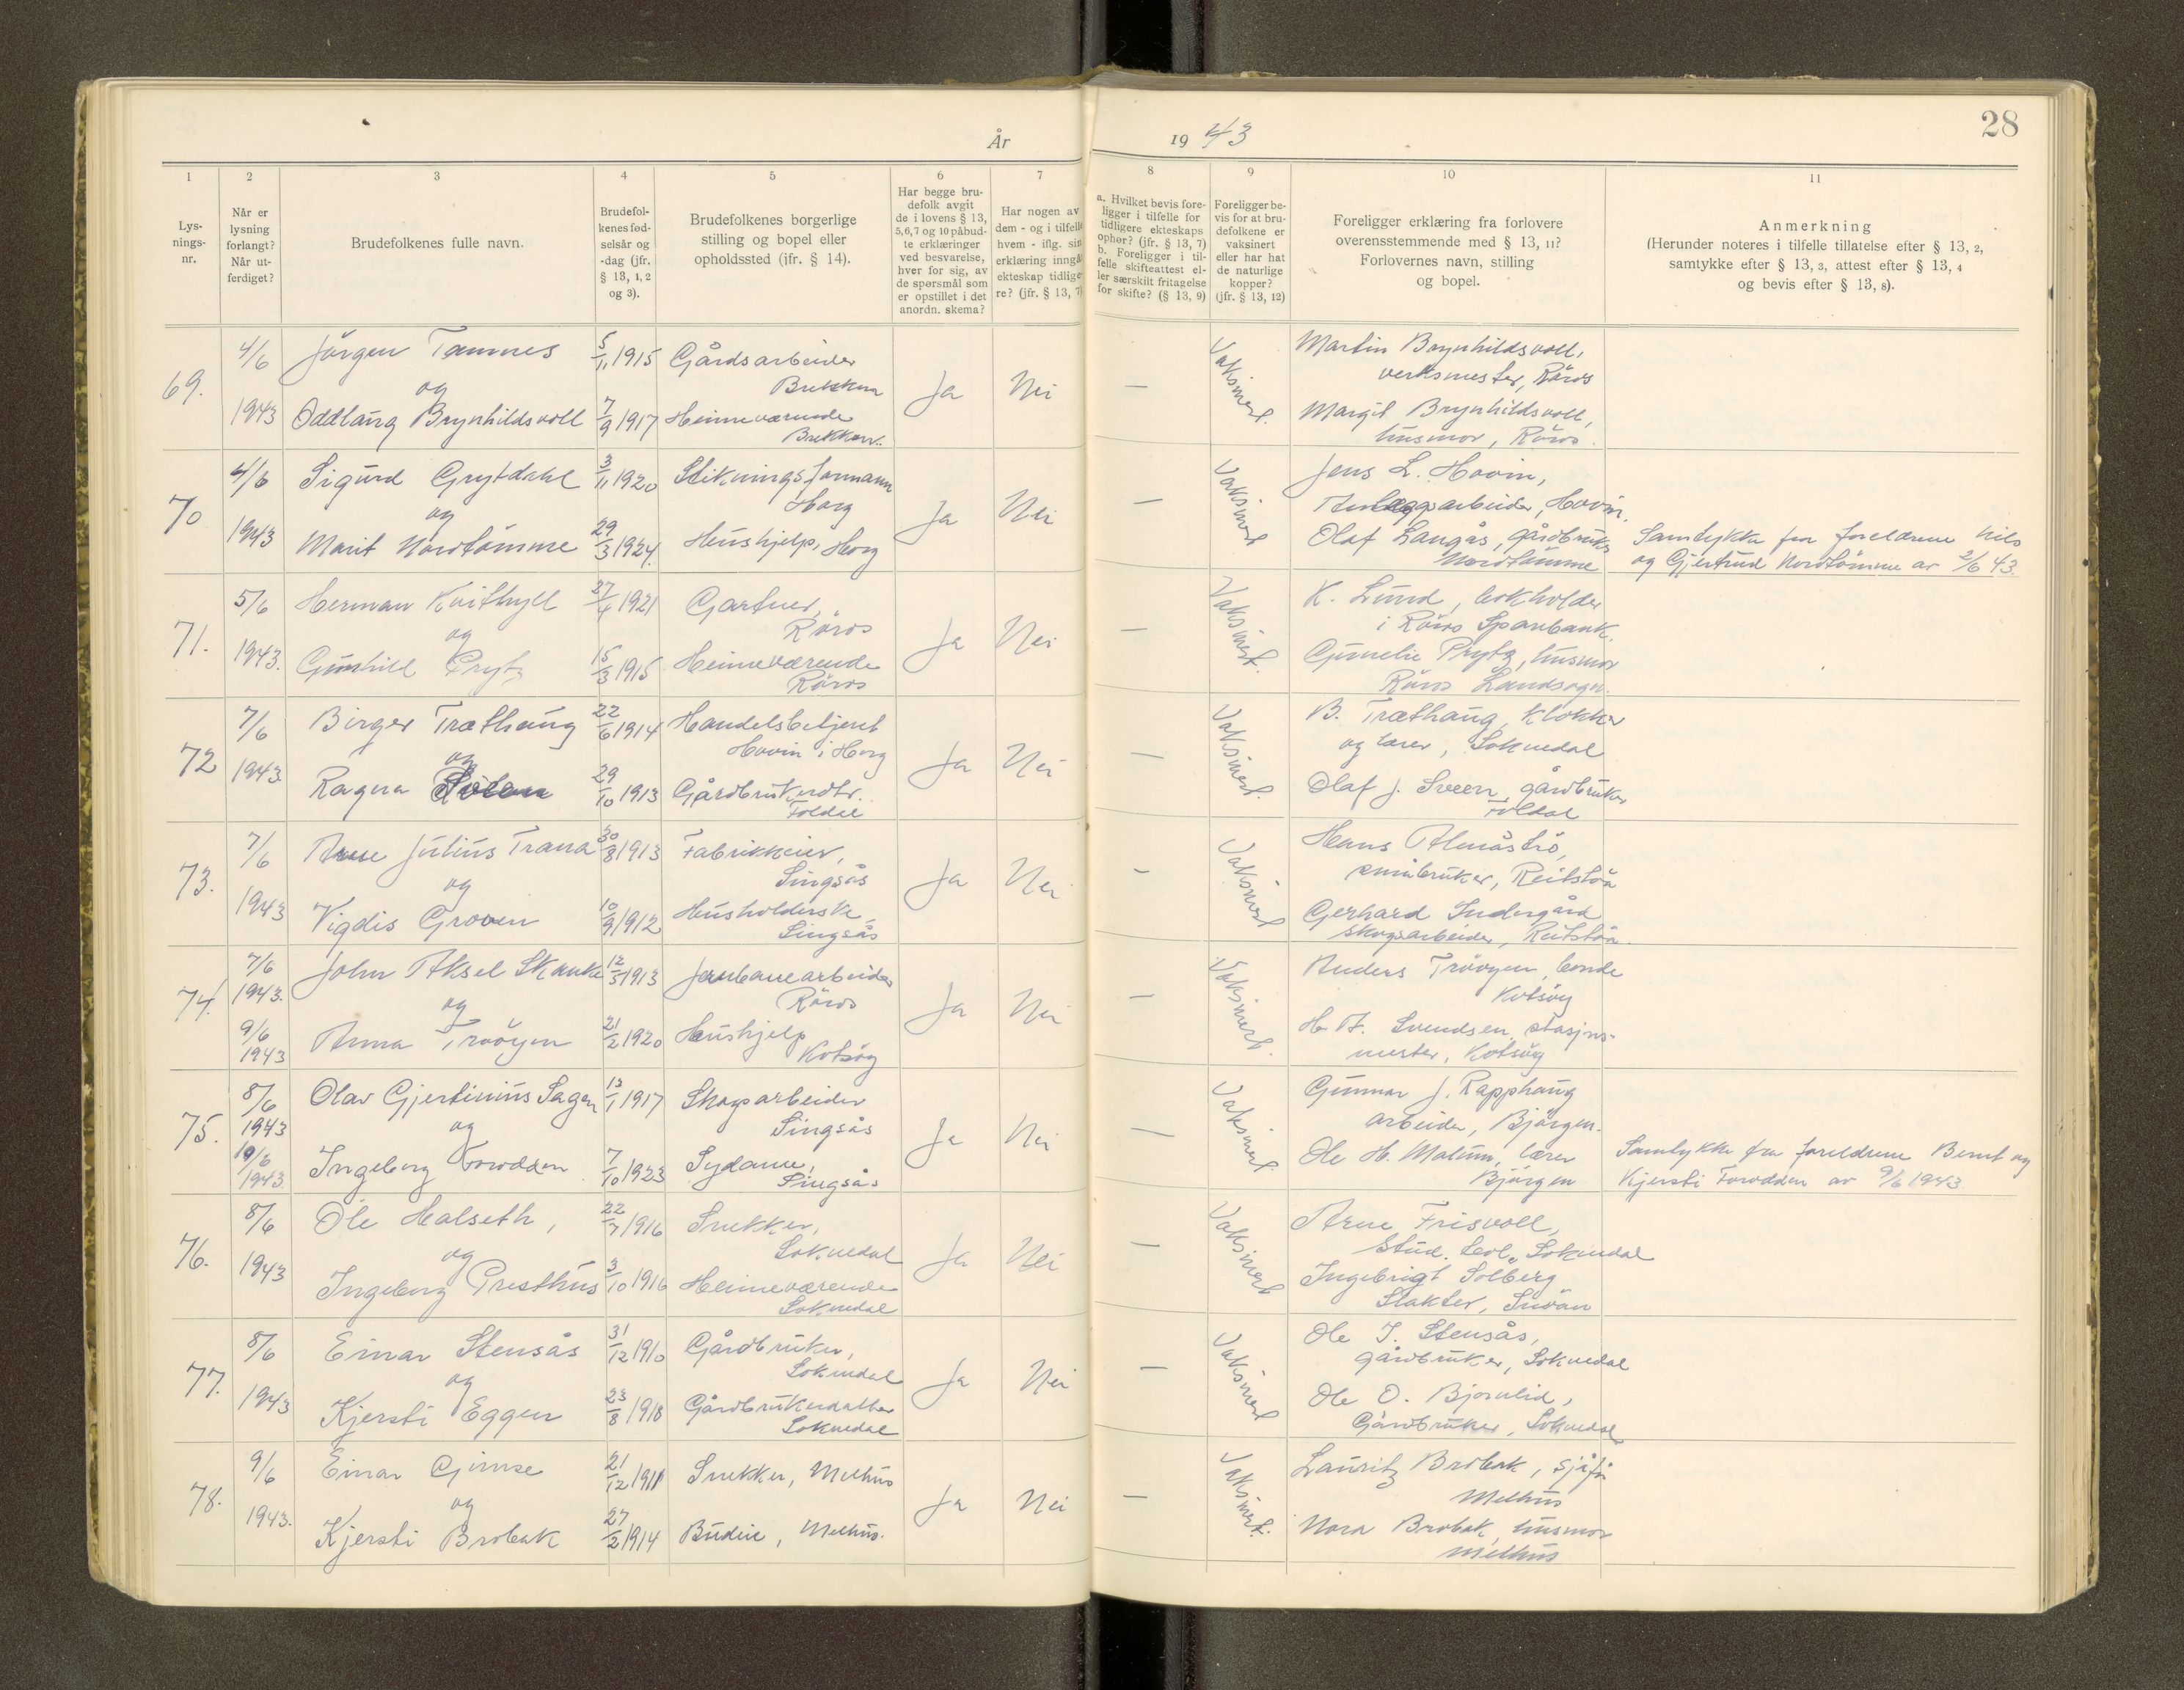 28
År 19 43
1 2 3 4 5 6 7 8 9 10 11
Lys-
nings-
nr.
Når er
lysning
forlangt?
Når ut-
ferdiget?
Brudefolkenes fulle navn.
Brudefol-
kenes fød-
selsår og
-dag (jfr.
§ 13, 1, 2
og 3).
Brudefolkenes borgerlige
stilling og bopel eller
opholdssted (jfr. § 14).
Har begge bru-
defolk avgit
de i lovens § 13,
5, 6, 7 og 10 påbud-
te erklæringer
ved besvarelse,
hver for sig, av
de spørsmål som
er opstillet i det
anordn. skema?
Har nogen av
dem - og i tilfelle
hvem - iflg. sin
erklæring inngå
ekteskap tidlige-
re? (jfr. § 13, 7)
a. Hvilket bevis fore-
ligger i tilfelle for
tidligere ekteskaps
ophør? (jfr. § 13, 7)
b. Foreligger i til-
felle skifteattest el-
ler særskilt fritagelse
for skifte? (§ 13, 9)
Foreligger be-
vis for at bru-
defolkene er
vaksinert
eller har hat
de naturlige
kopper?
(jfr. § 13, 12)
Foreligger erklæring fra forlovere
overensstemmende med § 13, 11?
Forlovernes navn, stilling
og bopel.
Anmerkning
(Herunder noteres i tilfelle tillatelse efter § 13, 2,
samtykke efter § 13, 3, attest efter § 13, 4
og bevis efter § 13, 8).
69.
4/6
1943
Jörgen Tamnes
og
Oddlaug Brynhildsvoll
5/11 1915
7/9 1917
Gårdsarbeider
Brekken
Heimeværende
Brekken.
Ja
Nei
—
Vaksinert.
Martin Brynhildsvoll,
verksmester, Röros
Margit Brynhildsvoll,
husmor, Röros.
70
4/6
1943
Sigurd Grytdahl
og
Marit Nordtömme
3/11 1920
29/3 1924.
Stikningsformann
Horg
Hushjelp, Horg
Ja
Nei
—
Vaksinert
Jens L. Hovin,
Anleggsarbeider, Hovin.
Olaf Langås, gårdbruker
Nordtömme
Samtykke fra foreldrene Nils
og Gjertrud Nordtömme av 2/6 43.
71.
5/6
1943.
Herman Kvithyll
og
Gunhild Prytz
27/4 1921
15/3 1915
Gartner,
Röros
Heimeværende
Röros
Ja
Nei
—
Vaksinert.
K. Lund, bokholder
i Röros Sparebank.
Gunelie Prytz, husmor
Röros Landsogn.
72
7/6
1943
Birger Træthaug
og
Ragna
22/6 1914
29/10 1913
Handelsbetjent
Hovin i Horg
Gårdbrukerdtr.
Foldal
Ja
Nei
—
Vaksinert.
B. Træthaug, klokker
og lærer, Soknedal
Olaf J. Sveen, gårdbruker
Folldal
73.
7/6
1943
Arne Julius Trana
og
Vigdis Groven
30/8 1913
10/9 1912
Fabrikkeier,
Singsås
Husholderske,
Singsås
Ja
Nei
—
Vaksinert
Hans Almåströ,
småbruker, Reitstöa
Gerhard Indergård
skogsarbeider, Reitstöa.
74.
7/6
1943.
9/6
1943
John Aksel Skanke
og
Anna Tröøyen
12/3 1913
21/2 1920
Jernbanearbeider
Röros
Hushjelp
Kotsöy
Ja
Nei
—
Vaksinert.
Anders Tröøyen, bonde
Kotsöy
H. A. Svendsen, stasjons-
mester, Kotsöy
75.
8/6
1943
19/6
1943
Olav Gjertinius Sagen
og
Ingeborg Forodden
13/1 1917
7/10 1923
Skogsarbeider
Singsås
Sydame,
Singsås
Ja
Nei
—
Vaksinert
Gunnar J. Rapphaug
arbeider, Bjørgen.
Ole H. Molum, lærer
Bjørgen
Samtykke fra foreldrene Bernt og
Kjersti Forodden av 9/6 1943
76.
8/6
1943
Ole Halseth,
og
Ingeborg Presthus
22/7 1916
3/10 1916
Snekker,
Soknedal
Heimeværende
Soknedal
Ja
Nei
—
Vaksinert
Arne Frisvoll,
Stud. teol. Soknedal
Ingebrigt Solberg
Slakter, Snöan
77.
8/6
1943
Einar Stensås
og
Kjersti Eggen
31/12 1910
23/8 1918
Gårdbruker,
Soknedal
Gårdbrukerdatter
Soknedal
Ja
Nei
—
Vaksinert
Ole I. Stensås,
gårdbruker, Soknedal
Ole O. Bjørnlid,
Gårdbruker, Soknedal
78.
9/6
1943.
Einar Gimse
og
Kjersti Brobak
21/12 1911
27/2 1914
Snekker, Melhus
Budeie, Melhus.
Ja
Nei
—
Vaksinert.
Lauritz Brobak, sjåfør
Melhus
Nora Brobak, husmor
Melhus